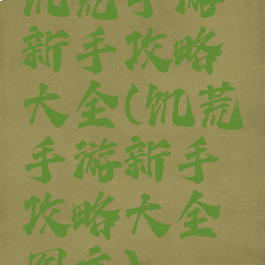 饥荒手游
新手攻略
大全(饥荒
手游新手
攻略大全
图文)